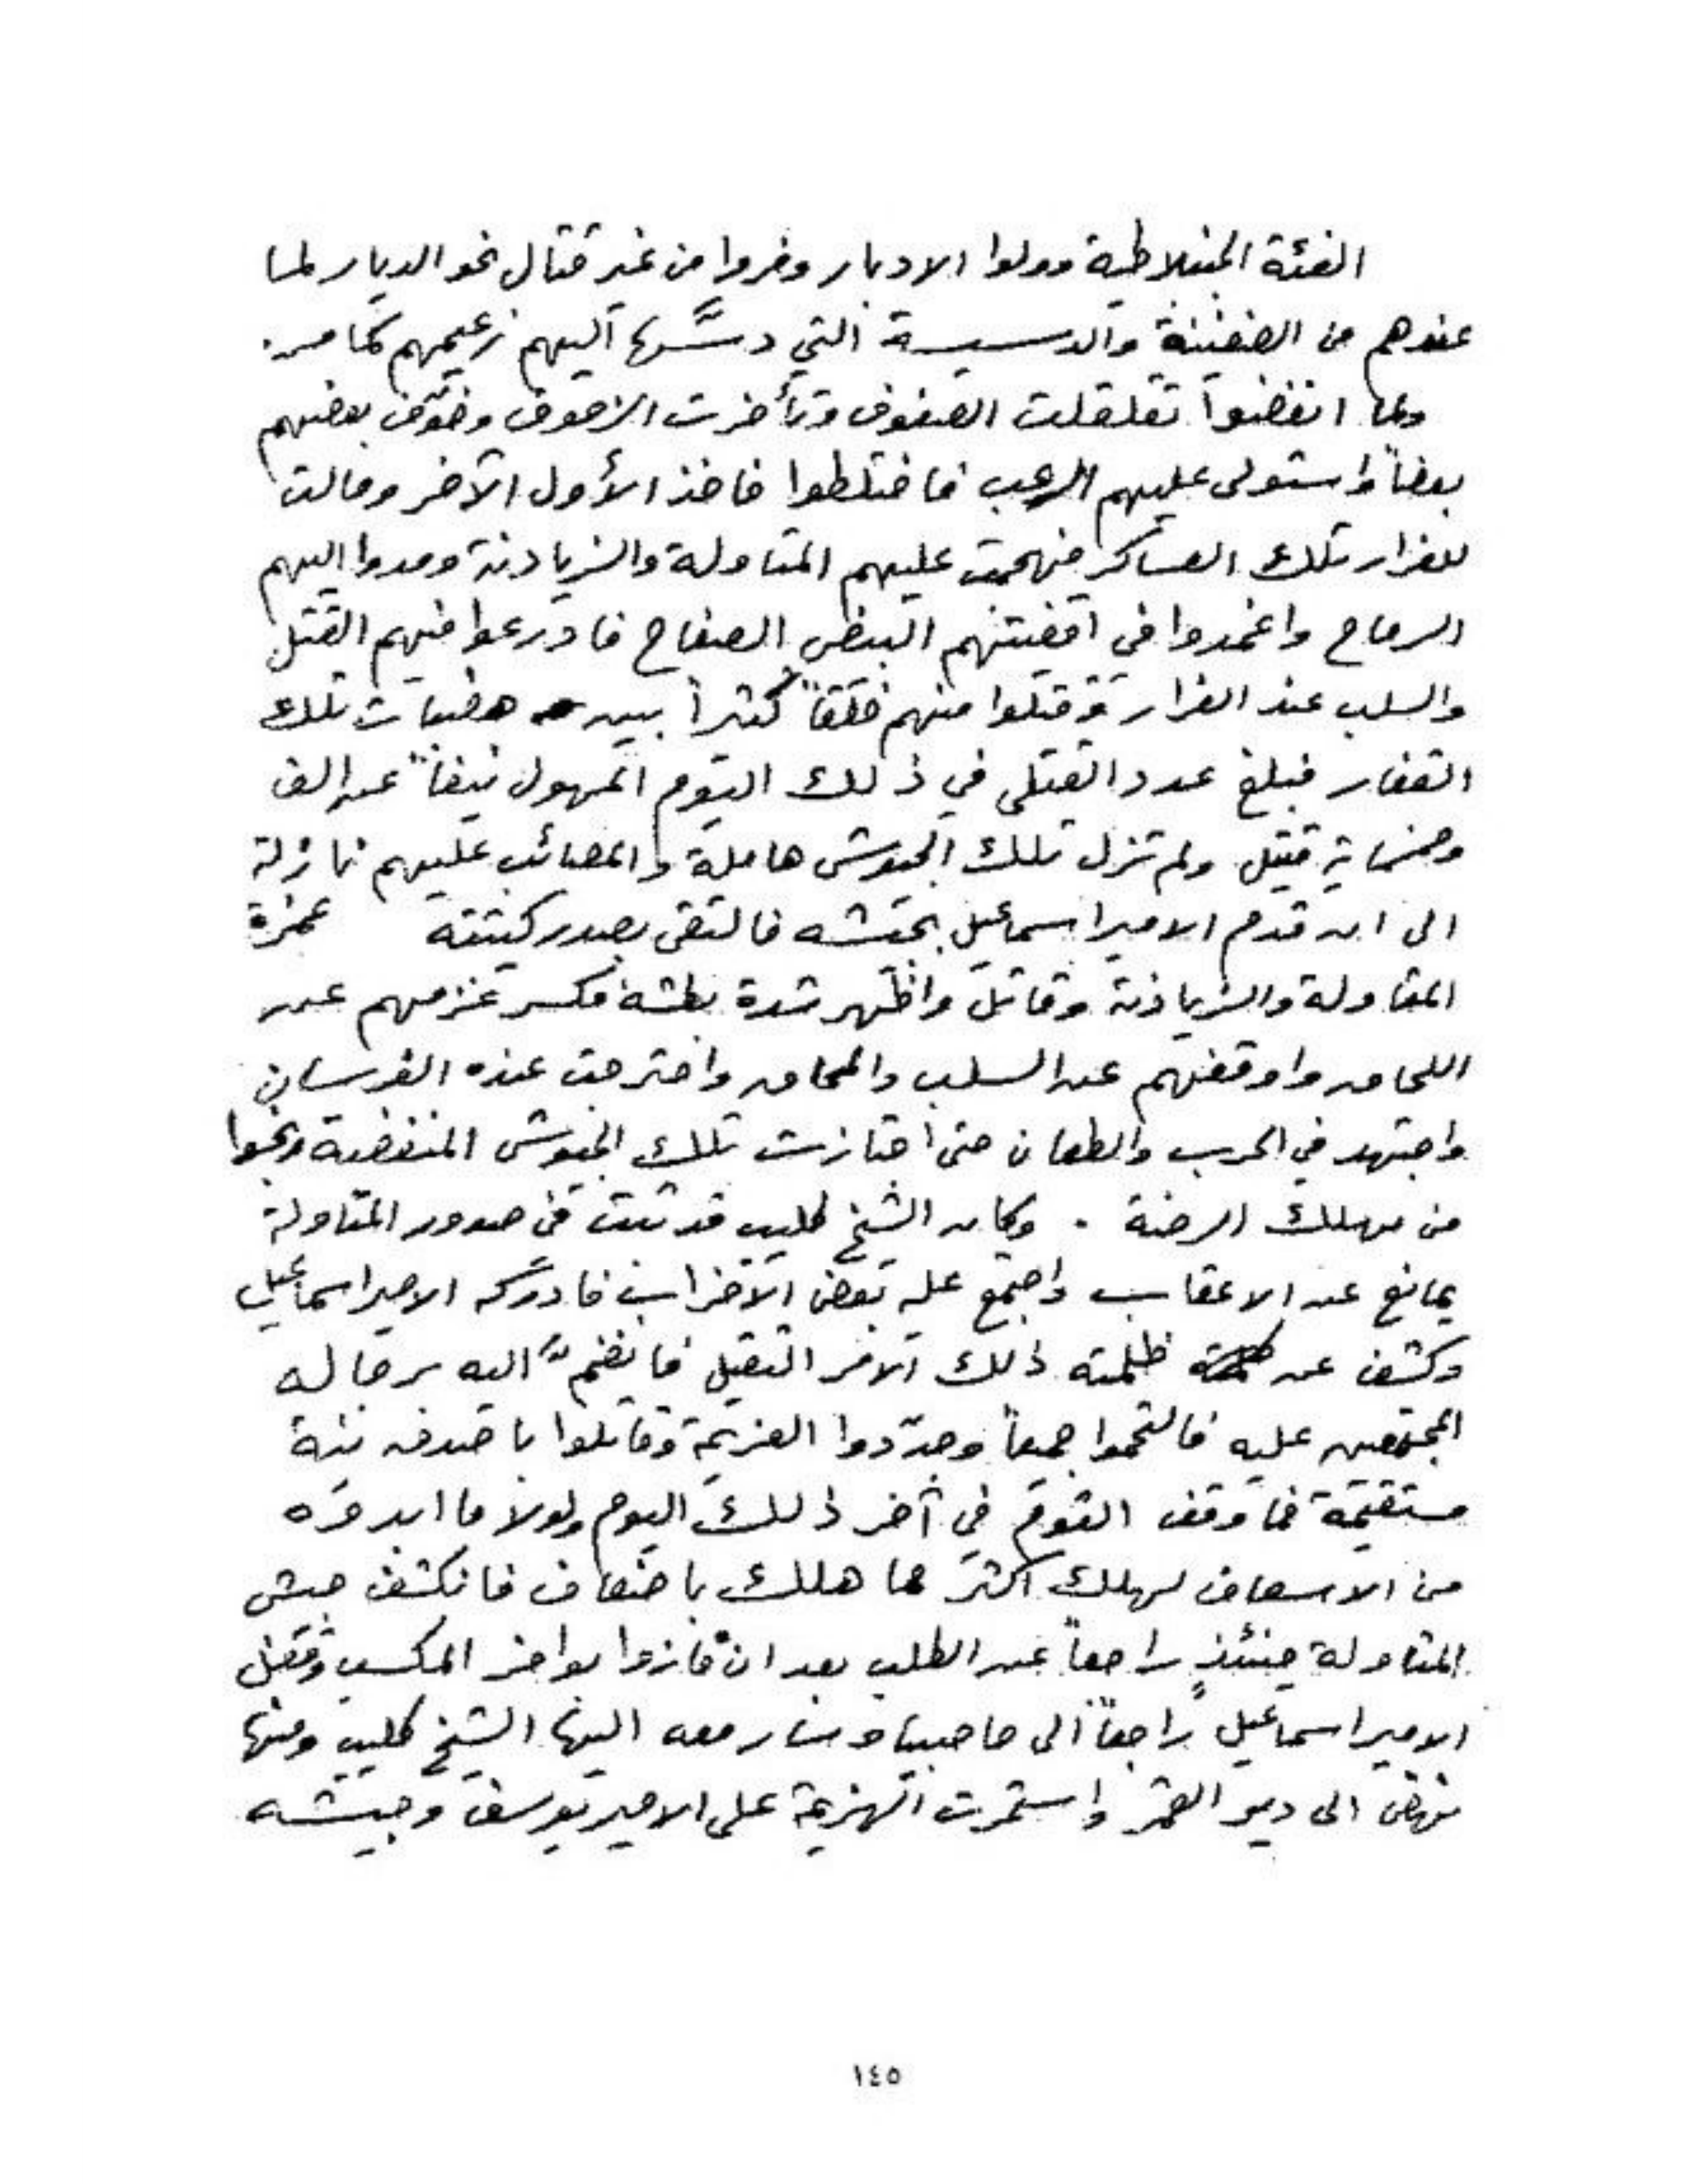 الفئة الجنبلاطية وولوا الادبار وفروا من غير قتال نحو الديار لما
عندهم من الضغينة والدسيسة التي دسَّها اليهم زعيمهم كما مر.
ولما انفضوا تقلقلت الصفوف وتأخرت الزحوف وخوّف بعضهم
بعضاً واستولى عليهم الرعب فاختلطوا فاخذ الأول الآخر ومالت
للفرار تلك العساكر فهجمت عليهم المتاولة والزيادنة ومدوا اليهم
الرماح واغمدوا في اقفيتهم البيض الصفاح فاودعوا فيهم القتل
والسلب عند الفرار وقتلوا منهم خلقاً كثيراً بين هضبات تلك
القفار فبلغ عدد القتلى في ذلك اليوم المهول نيفاً عن الف
وخمسماية قتيل ولم تزل تلك الجيوش هاملة والمصائب عليهم نازلة
الى ان قدم الامير اسماعيل بجيشه فالتقى بصدر كتيبته غمرة
المتاولة والزيادنة وقاتل واظهر شدة بطشه فكسر عزمهم عن
اللحاق واوقفهم عن السلب والمحاق واخترجت عنده الفرسان
واجتهد في الحرب والطعان حتى اجتازت تلك الجيوش المنفضية ونجوا
من مهلك الرضة . وكان الشيخ كليب قد ثبت في صدور المتاولة
يمانع عن الاعقاب واجتمع عليه بعض الاخراب فادركه الامير اسماعيل
وكشف عن ظلمته ذلك الامر الثقيل فانضمَّ اليه برجاله
المجتمعين عليه فالتحموا جميعاً وجدّدوا العزيمة وقاتلوا باصدق نية
مستقيمة فما وقف القوم في آخر ذلك اليوم ولولا ما ابدوه
من الاسعاف لهلك اكثر مما هلك باضعاف فانكشف جيش
المتاولة حينئذٍ راجعاً عن الطلب بعد ان فازوا بوافر المكسب وقفل
الامير اسماعيل راجعاً الى حاصبيا وسار معه اليها الشيخ كليب ومنها
نهض الى دير القمر واستمرت الهزيمة على الامير يوسف وجيشه
١٤٥